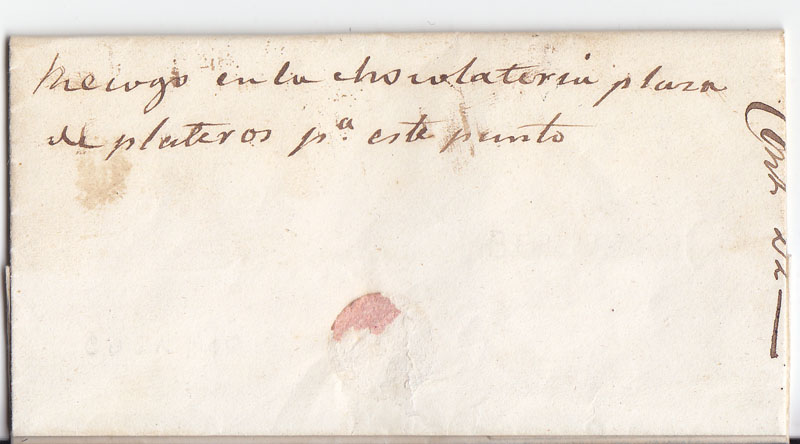 Recogo en la chocolateria plaza
de plateros pª este punto